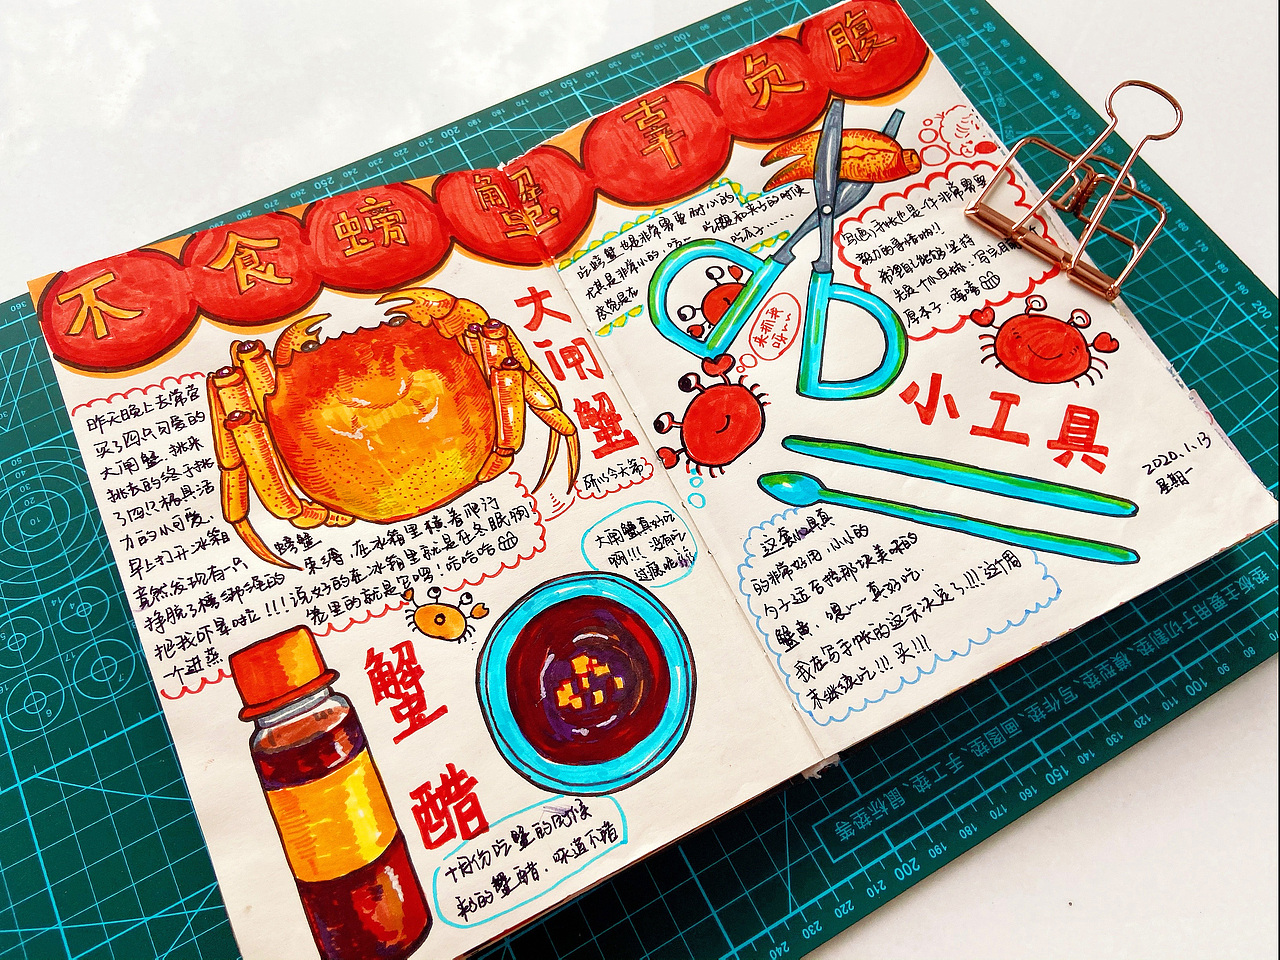 不食螃蟹辜负腹
大闸蟹
昨天晚上去常营
买了四只可爱的
大闸蟹，挑来
挑去的终于挑
了四只极具活
力的小可爱，
早上打开冰箱
竟然发现有一只螃蟹
挣脱了束缚，在冰箱里横着爬行
把我吓晕啦！！！说好的在冰箱里就是在冬眠啊！
一个进蒸
笼里的就是它啦！哈哈哈
大闸蟹真好吃
啊！！！没有吃
过瘾
蟹醋
十月份吃蟹的时候
的蟹醋，味道不错
吃螃蟹也是非常需要耐心的，
尤其是非常小的
吃瓜子……
感觉是在
来抓我
呀~~
写(画)手帐也是一件非常需要
毅力的事情哟!!
希望自己能够坚持
先定一个小目标：写完
厚本子，嘻嘻
小工具
2020.1.13
星期一
这套小工具真
的非常好用，小小的
勺子还舌
蟹黄，嗯~~真好吃.
我在写手帐的这会
决定了!!!这个周
末继续吃!!!买!!!
垫板主要用于切割垫、模型垫、写作垫、画图垫、手工垫、鼠标垫等